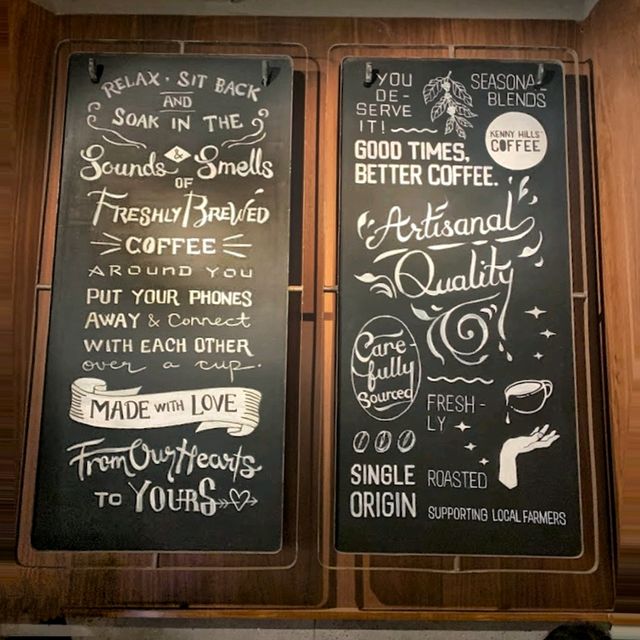 RELAX · SIT BACK
AND
SOAK IN THE
Sounds & Smells
OF
FRESHLY BREWED
COFFEE
AROUND YOU
PUT YOUR PHONES
AWAY & Connect
WITH EACH OTHER
over a cup.
MADE WITH LOVE
From Our Hearts
TO YOURS
YOU
DE-
SERVE
IT!
SEASONAL
BLENDS
KENNY HILLS
COFFEE
GOOD TIMES,
BETTER COFFEE.
Artisanal
Quality
Care-
fully
Sourced
FRESH-
LY
ROASTED
SINGLE
ORIGIN
SUPPORTING LOCAL FARMERS